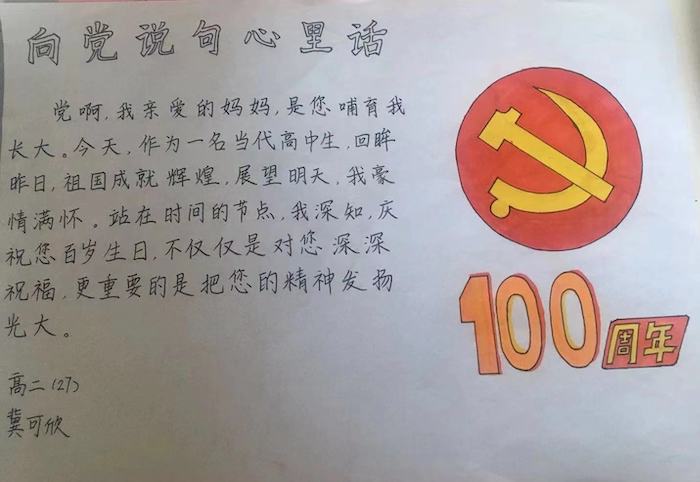 向党说句心里话
党啊,我亲爱的妈妈,是您哺育我
长大。今天,作为一名当代高中生,回眸
昨日,祖国成就辉煌,展望明天,我豪
情满怀。站在时间的节点,我深知,庆
祝您百岁生日,不仅仅是对您深深
祝福,更重要的是把您的精神发扬
光大。
高二(27)
冀可欣
100周年